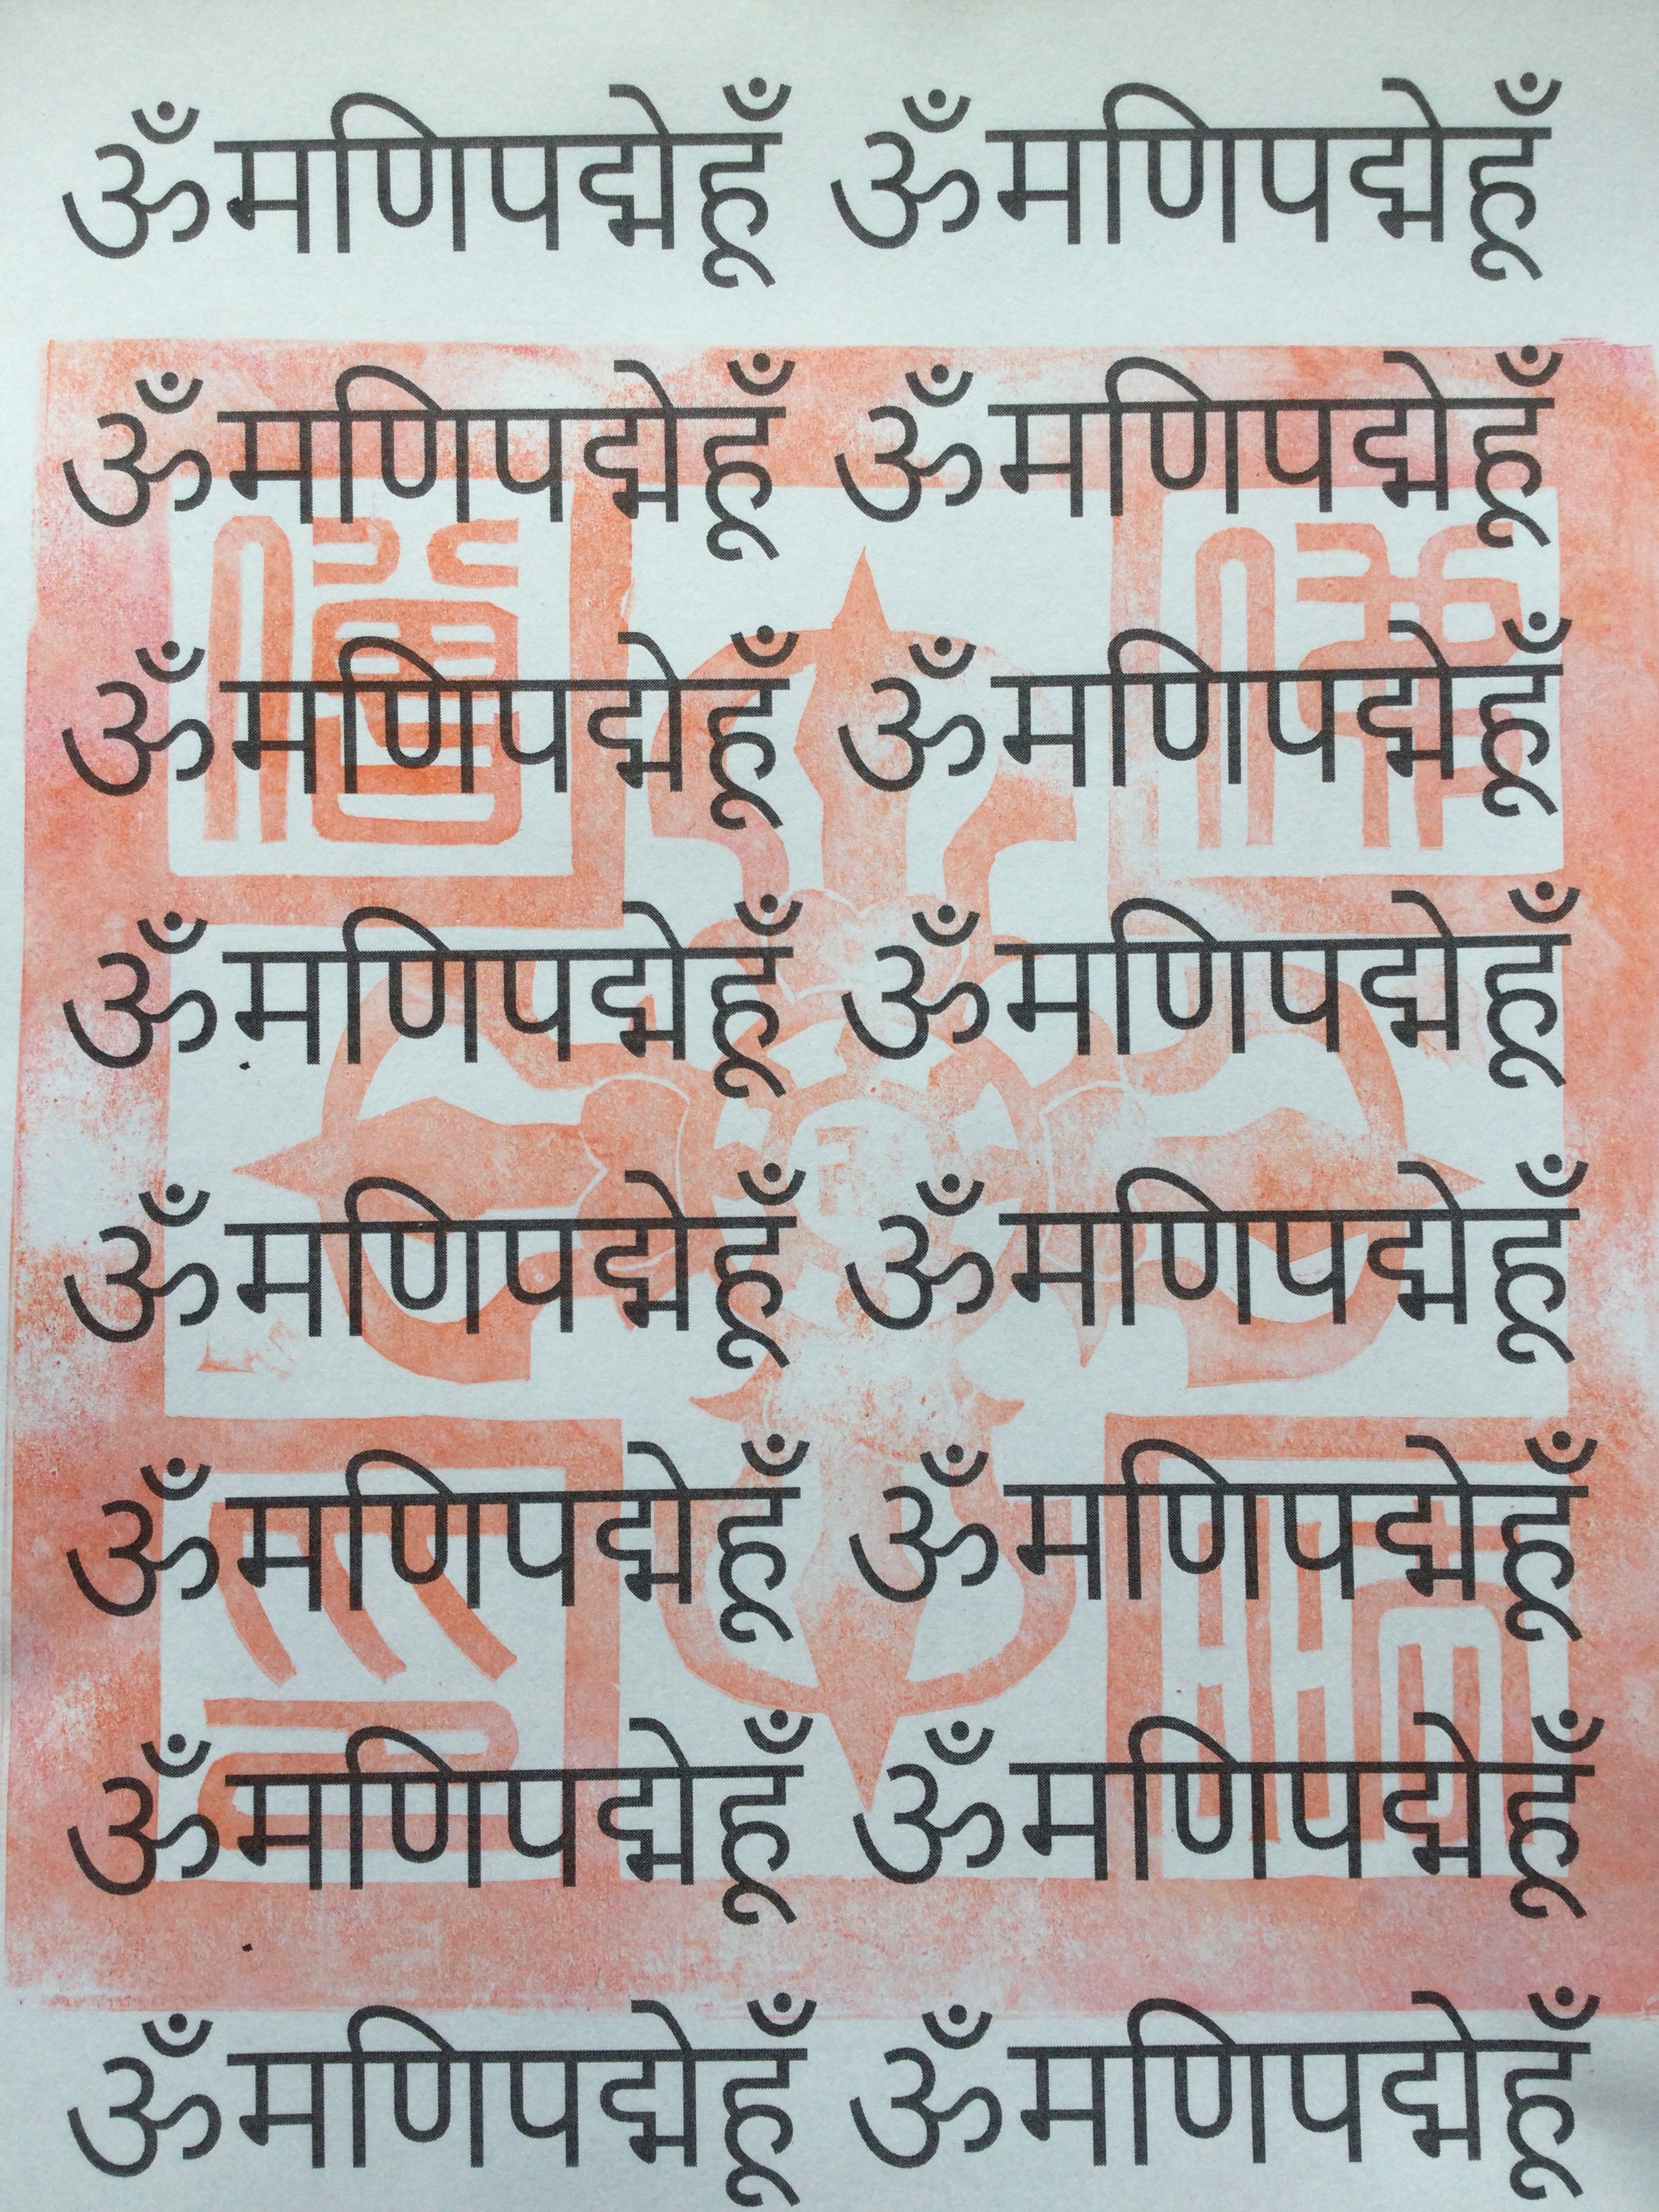 ॐमणिपद्मेहूँ ॐमणिपद्मेहूँ
ॐमणिपद्मेहूँ ॐमणिपद्मेहूँ
ॐमणिपद्मेहूँ ॐमणिपद्मेहूँ
ॐमणिपद्मेहूँ ॐमणिपद्मेहूँ
ॐमणिपद्मेहूँ ॐमणिपद्मेहूँ
ॐमणिपद्मेहूँ ॐमणिपद्मेहूँ
ॐमणिपद्मेहूँ ॐमणिपद्मेहूँ
ॐमणिपद्मेहूँ ॐमणिपद्मेहूँ